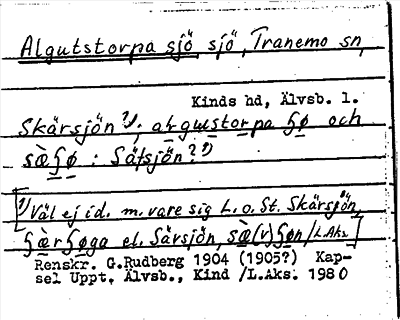 Algutstorpa sjö sjö, Tranemo sn,
Kinds hd, Älvsb. l.
Skärsjön ?¹); algustorpa ʃø och
sæʃø : Sätsjön? ¹)
[¹) Väl ej id. m. vare sig L. o. St. Skärsjön,
ʃærʃøga el. Särsjön, sæ(v)ʃøn /L.Aks.]
Renskr. G.Rudberg 1904 (1905?) Kap-
sel Uppt. Älvsb., Kind /L.Aks. 1980